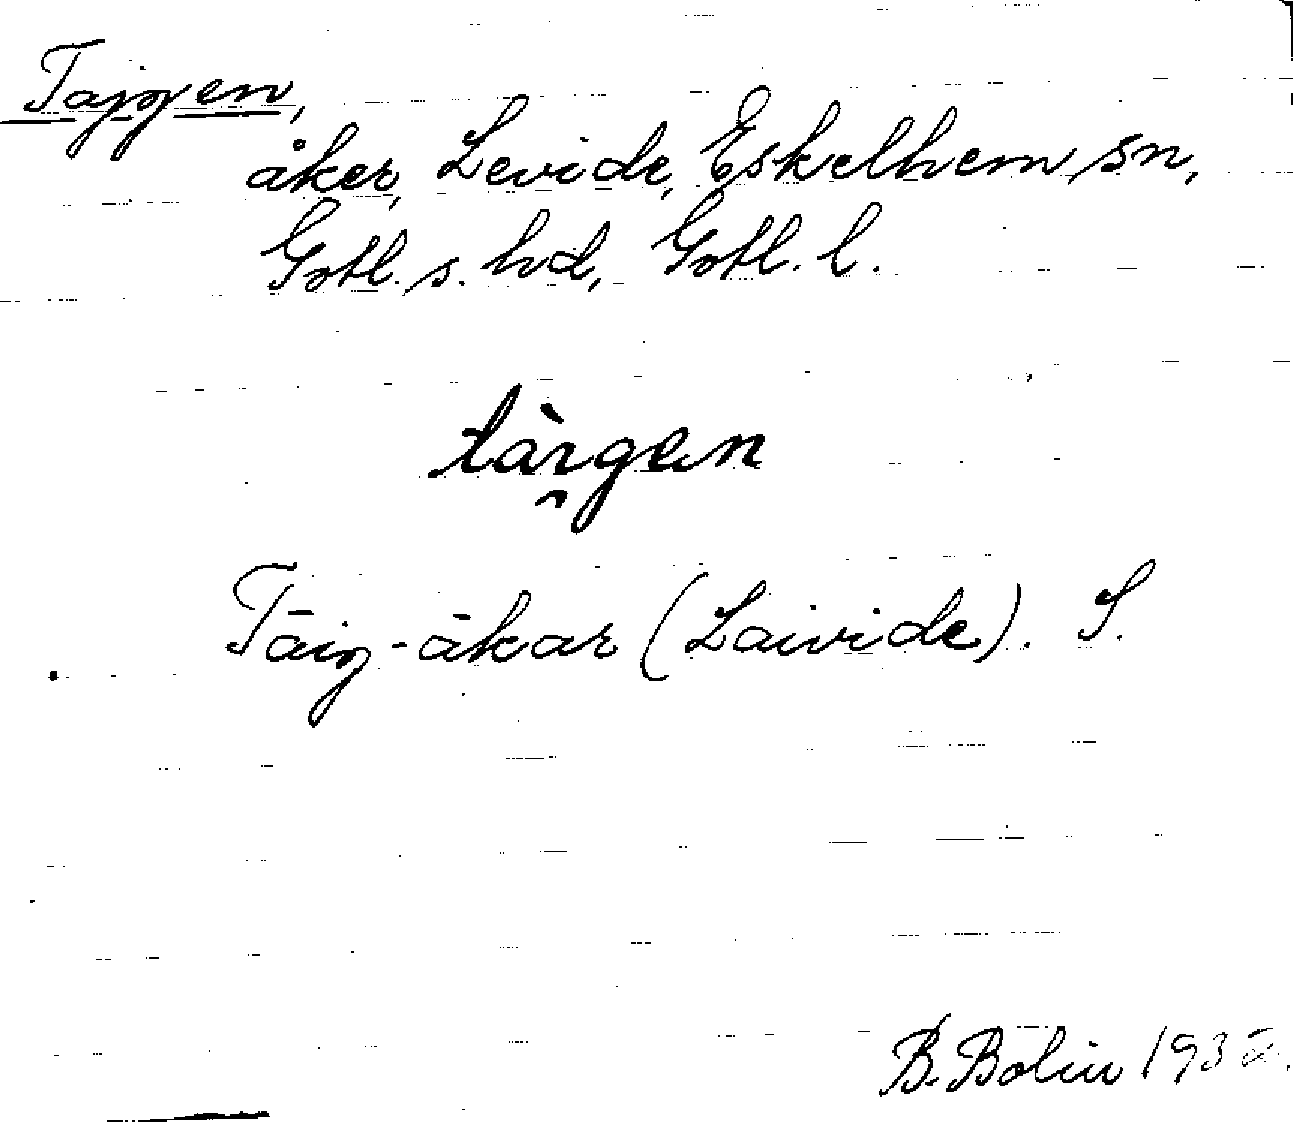 Tajgen,
åker, Levide, Eskelhem sn,
Gotl. s. hd, Gotl. l.
tàɪ̯gen
Tāig-ākar (Laivide). S.
B. Bolin 1932.